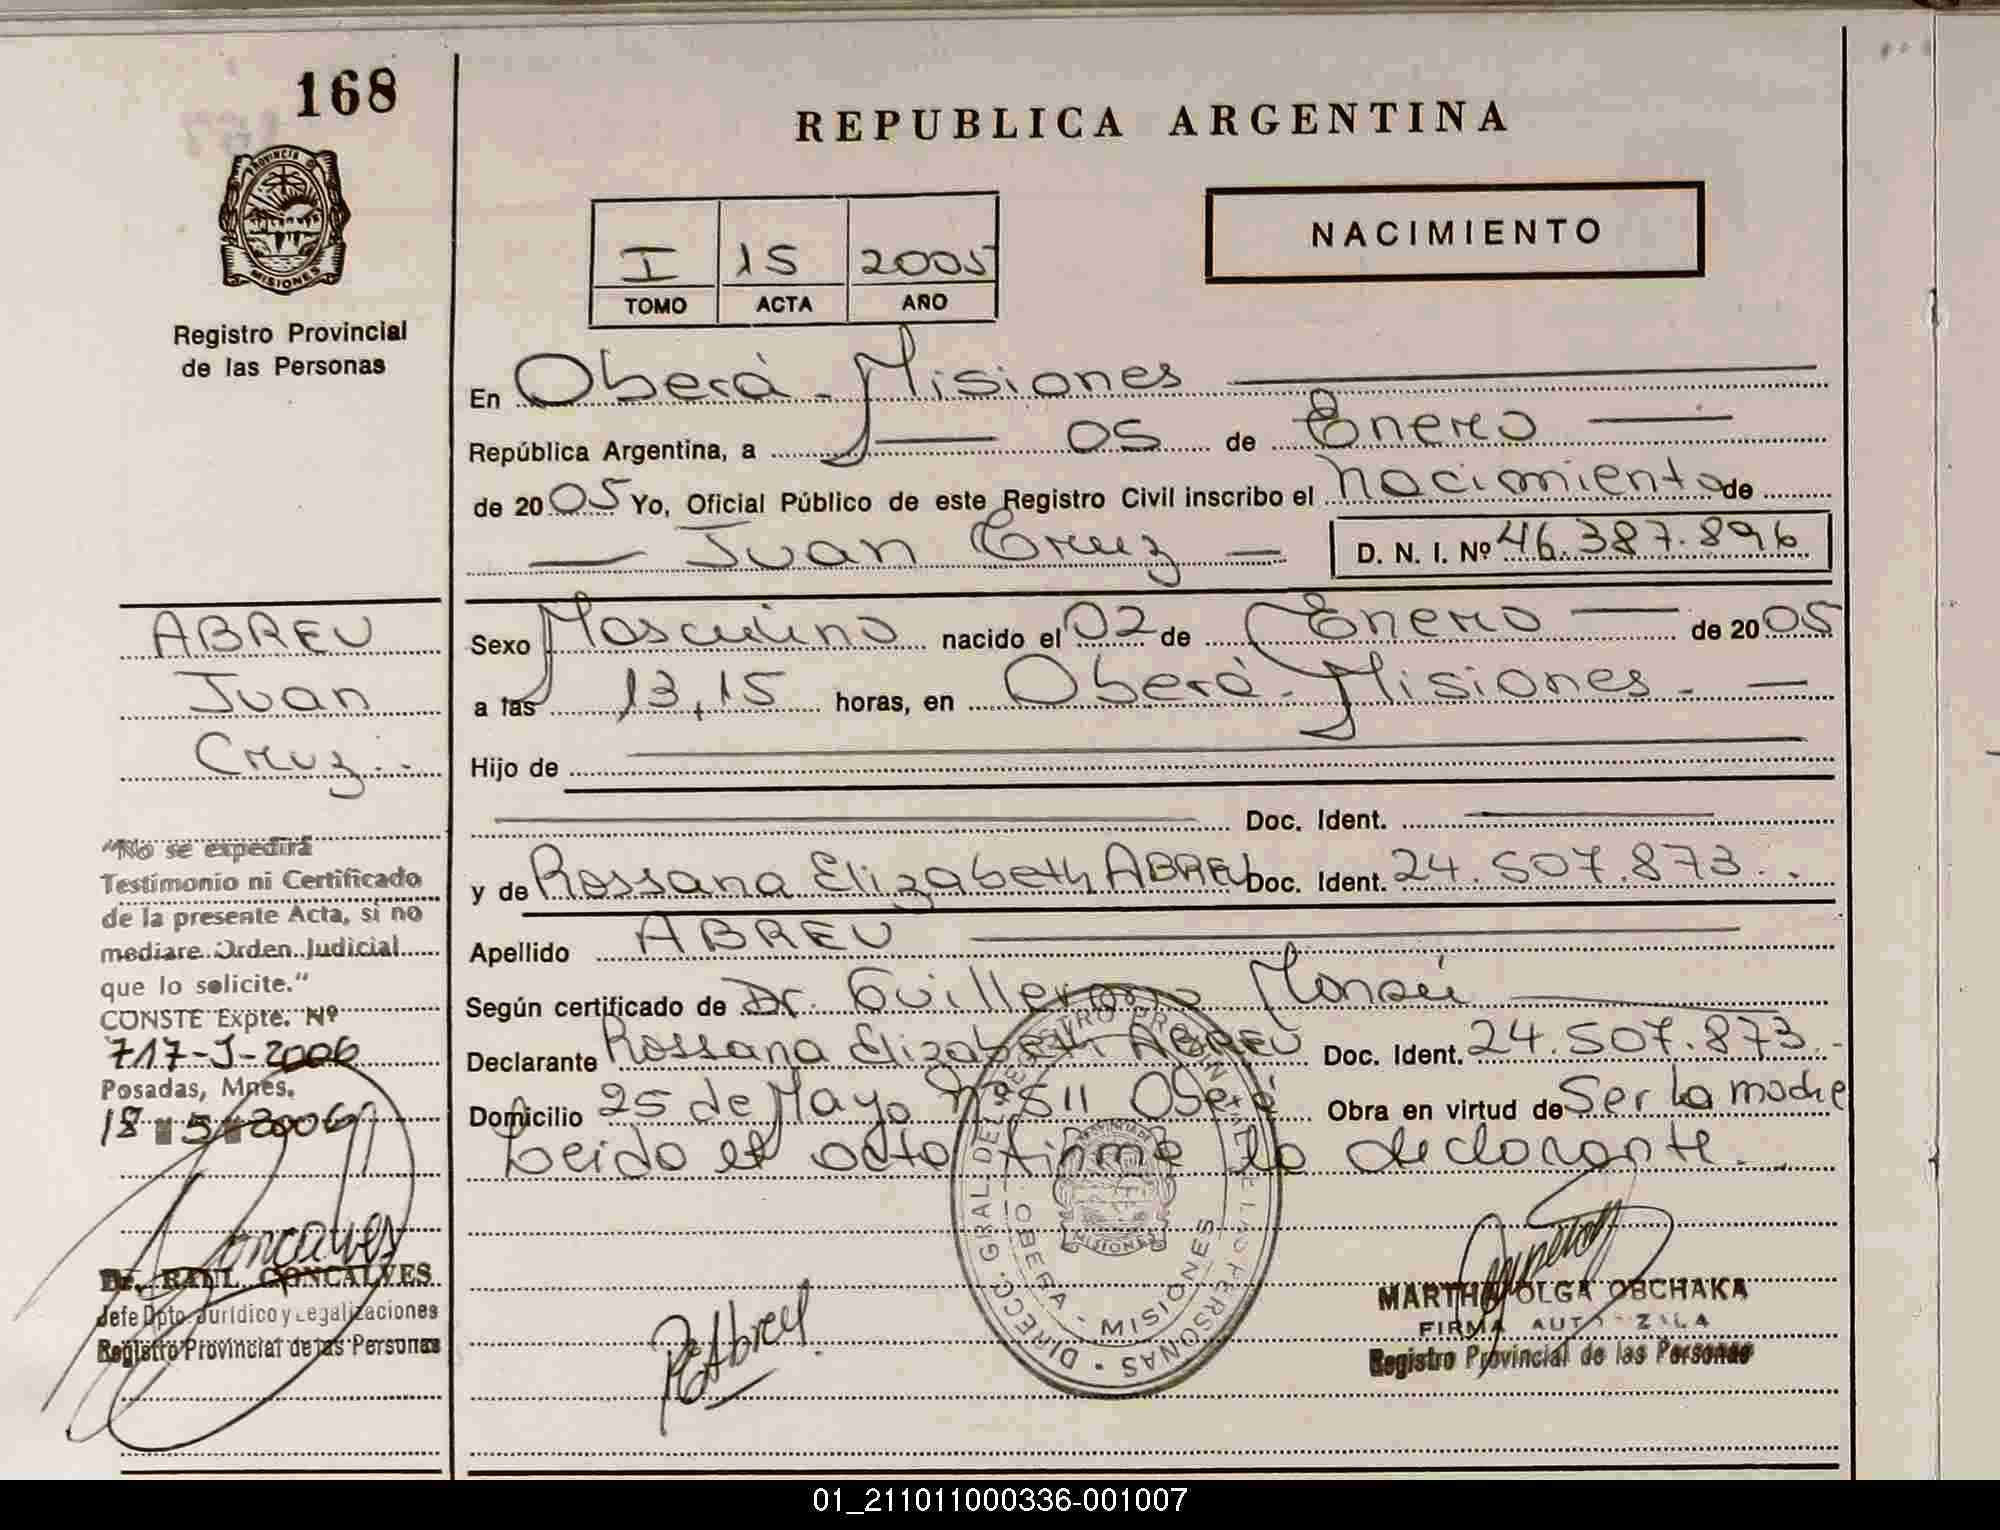 168
PROVINCIA DE
MISIONES
Registro Provincial
de las Personas
REPUBLICA ARGENTINA
NACIMIENTO
I 15 2005
TOMO ACTA AÑO
En Oberá - Misiones
República Argentina, a 05 de Enero
de 2005 Yo, Oficial Público de este Registro Civil inscribo el nacimiento de
Juan Cruz D. N. I. Nº 46.387.896
Sexo Masculino nacido el 02 de Enero de 2005
a las 13,15 horas, en Oberá - Misiones.
Hijo de
Doc. Ident.
y de Rossana Elizabeth ABREU Doc. Ident. 24.507.873..
Apellido ABREU
Según certificado de Dr. Guillermo
Declarante Rossana Elizabeth ABREU Doc. Ident. 24.507.873.-
Domicilio 25 de Mayo Nº 511 Oberá Obra en virtud de Ser la madre
Leido el acta firma la declarante.
ABREU
Juan
Cruz..
"No se expedirá
Testimonio ni Certificado
de la presente Acta, si no
mediare Orden Judicial
que lo solicite."
CONSTE Expte. Nº
717-J-2006
Posadas, Mnes.
18 5 2006
Goncalves
Dr. RAUL GONCALVES
Jefe Dpto. Jurídico y Legalizaciones
Registro Provincial de las Personas
REAbreu
DIRECC. GRAL. DEL REGISTRO PROVINCIAL DE LAS PERSONAS
OBERA - MISIONES
MISIONES
MARTHA OLGA OBCHAKA
FIRMA AUTORIZADA
Registro Provincial de las Personas
01_211011000336-001007